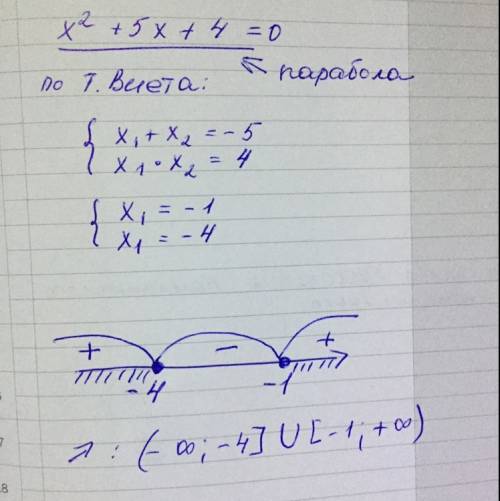 x² + 5x + 4 = 0
парабола
по Т. Виета:
x₁ + x₂ = -5
x₁ • x₂ = 4
x₁ = -1
x₁ = -4
+ - +
-4 -1
: (-∞; -4] U [-1; +∞)